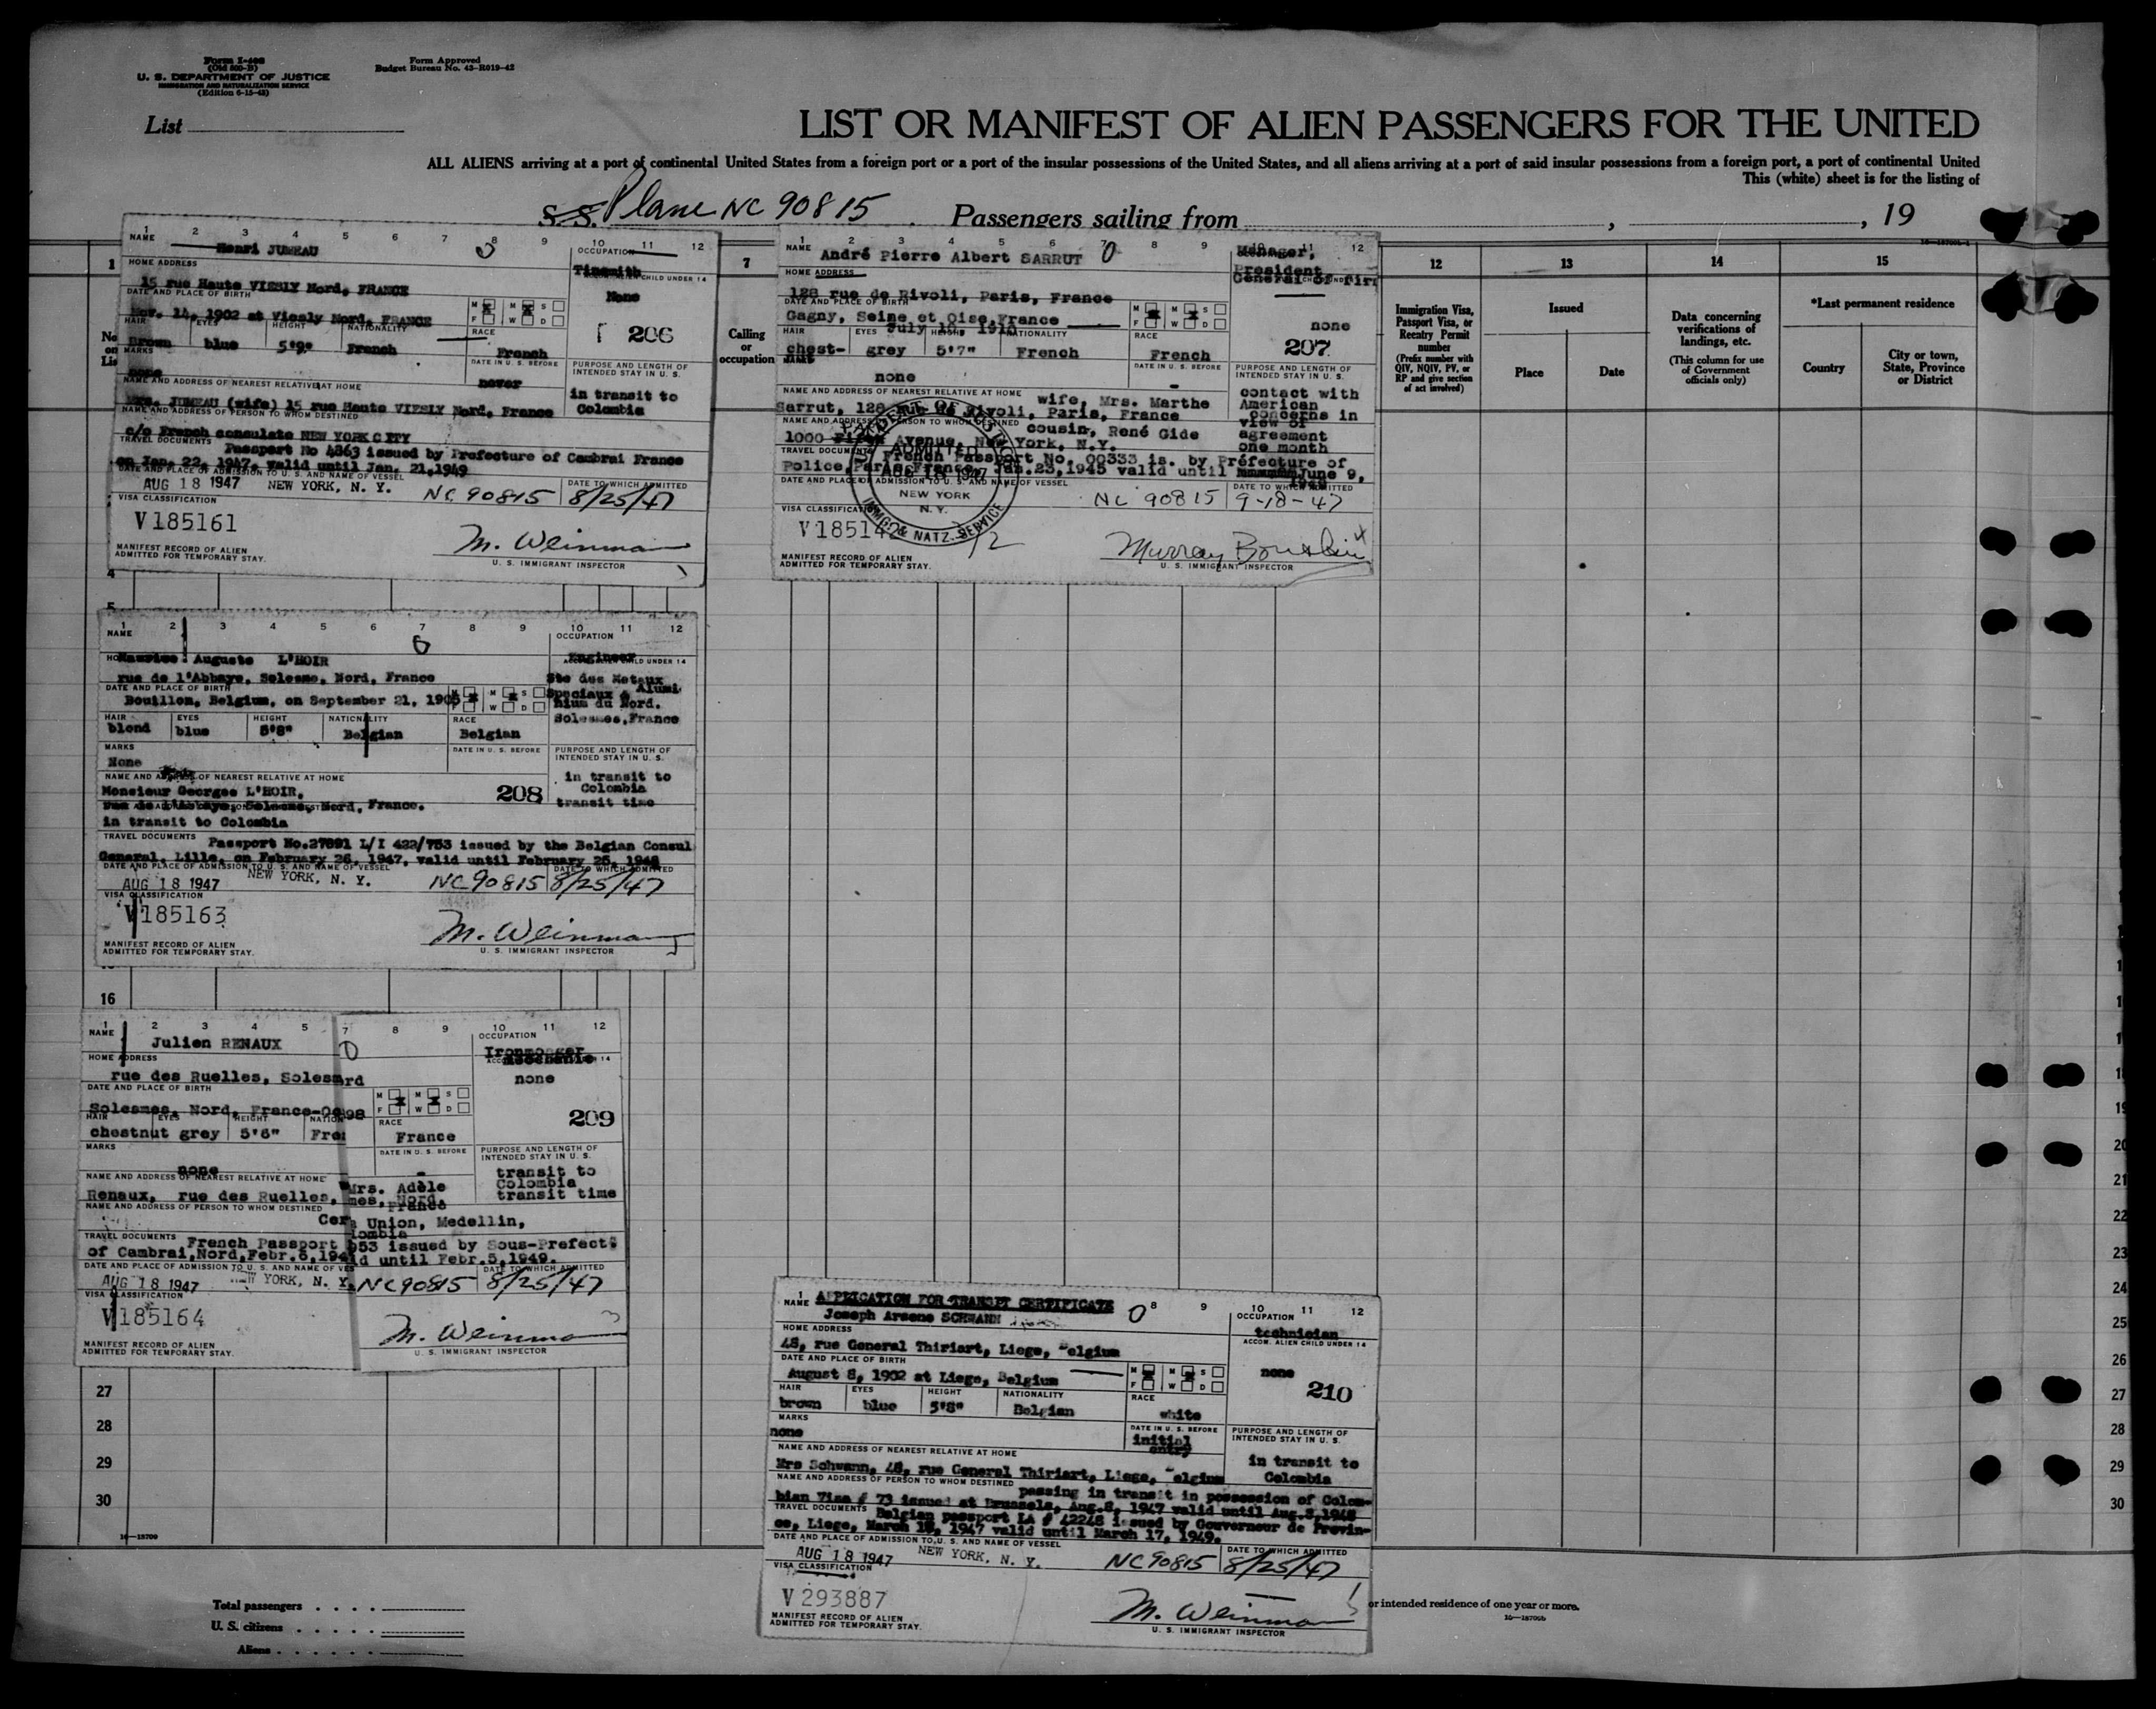 Form I-408
(Old 500-B)
U. S. DEPARTMENT OF JUSTICE
IMMIGRATION AND NATURALIZATION SERVICE
(Edition 6-15-43)
Form Approved
Budget Bureau No. 43-R019-42
List
LIST OR MANIFEST OF ALIEN PASSENGERS FOR THE UNITED
ALL ALIENS arriving at a port of continental United States from a foreign port or a port of the insular possessions of the United States, and all aliens arriving at a port of said insular possessions from a foreign port, a port of continental United
This (white) sheet is for the listing of
S.S. Plane NC 90815 Passengers sailing from , , 19
1 2 3 4 5 6 7 8 9 10 11 12
NAME Henri JUMEAU
OCCUPATION
Tinsmith
HOME ADDRESS
CHILD UNDER 14
15 rue Haute VIESLY Nord, FRANCE
None
DATE AND PLACE OF BIRTH
Nov. 14, 1902 at Viesly Nord, FRANCE
M M S
F W D
206
HAIR EYES HEIGHT NATIONALITY RACE
Brown blue 5'9" French French
MARKS
none
DATE IN U. S. BEFORE
never
PURPOSE AND LENGTH OF
INTENDED STAY IN U. S.
in transit to
Colombia
NAME AND ADDRESS OF NEAREST RELATIVE AT HOME
Mrs. JUMEAU (wife) 15 rue Haute VIESLY Nord, France
NAME AND ADDRESS OF PERSON TO WHOM DESTINED
c/o French consulate NEW YORK CITY
TRAVEL DOCUMENTS
Passport No 4863 issued by Prefecture of Cambrai France
on Jan. 22, 1947, valid until Jan. 21,1949
DATE AND PLACE OF ADMISSION TO U. S. AND NAME OF VESSEL
DATE TO WHICH ADMITTED
AUG 18 1947 NEW YORK, N. Y. NC 90815 8/25/47
VISA CLASSIFICATION
V185161
M. Weinman
MANIFEST RECORD OF ALIEN
ADMITTED FOR TEMPORARY STAY.
U. S. IMMIGRANT INSPECTOR
7
Calling
or
occupation
1 2 3 4 5 6 7 8 9 10 11 12
NAME André Pierre Albert SARRUT
Manager,
President
General of Firm
HOME ADDRESS
128 rue de Rivoli, Paris, France
DATE AND PLACE OF BIRTH
Gagny, Seine et Oise,France
M M S
F W D
none
207
HAIR EYES HEIGHT NATIONALITY RACE
chest- grey 5'7" French French
none
DATE IN U. S. BEFORE
PURPOSE AND LENGTH OF
INTENDED STAY IN U. S.
contact with
American
concerns in
view of
agreement
one month
NAME AND ADDRESS OF NEAREST RELATIVE AT HOME
wife, Mrs. Marthe
Sarrut, 128 rue de Rivoli, Paris, France
NAME AND ADDRESS OF PERSON TO WHOM DESTINED
cousin, René Gide
1000 Fifth Avenue, New York, N.Y.
TRAVEL DOCUMENTS
French Passport No. 00333 is. by Préfecture of
Police,Paris,France, Jan.23,1945 valid until June 9,
DATE AND PLACE OF ADMISSION TO U. S. AND NAME OF VESSEL
DATE TO WHICH ADMITTED
ADMITTED
NEW YORK
N. Y.
IMMG. & NATZ. SERVICE
NC 90815 9-18-47
VISA CLASSIFICATION
MANIFEST RECORD OF ALIEN
ADMITTED FOR TEMPORARY STAY.
U. S. IMMIGRANT INSPECTOR
12
Immigration Visa,
Passport Visa, or
Reentry Permit
number
(Prefix number with
QIV, NQIV, PV, or
RP and give section
of act involved)
13
Issued
Place
Date
14
Data concerning
verifications of
landings, etc.
(This column for use
of Government
officials only)
15
*Last permanent residence
Country
City or town,
State, Province
or District
1 2 3 4 5 6 7 8 9 10 11 12
NAME
OCCUPATION
Engineer
Maurice Auguste L'HOIR
rue de l'Abbaye, Solesme, Nord, France
Ste des Metaux
Speciaux & Alumi
nium du Nord.
Solesmes,France
DATE AND PLACE OF BIRTH
Bouillon, Belgium, on September 21, 1905
M M S
F W D
HAIR EYES HEIGHT NATIONALITY RACE
blond blue 5'8" Belgian Belgian
MARKS
None
DATE IN U. S. BEFORE
PURPOSE AND LENGTH OF
INTENDED STAY IN U. S.
in transit to
Colombia
transit time
NAME AND ADDRESS OF NEAREST RELATIVE AT HOME
Monsieur Georges L'HOIR,
208
rue de l'Abbaye, Solesmes, Nord, France.
in transit to Colombia
TRAVEL DOCUMENTS
Passport No.27891 L/I 422/753 issued by the Belgian Consul
General, Lille, on February 26, 1947, valid until February 25, 1948
DATE AND PLACE OF ADMISSION TO U. S. AND NAME OF VESSEL
DATE TO WHICH ADMITTED
AUG 18 1947 NEW YORK, N. Y. NC90815 8/25/47
VISA CLASSIFICATION
V185163
M. Weinman
MANIFEST RECORD OF ALIEN
ADMITTED FOR TEMPORARY STAY.
U. S. IMMIGRANT INSPECTOR
16
1 2 3 4 5 7 8 9 10 11 12
NAME Julien RENAUX
OCCUPATION
Ironmonger
mechanic
HOME ADDRESS
rue des Ruelles, Solesm rd
none
DATE AND PLACE OF BIRTH
Solesmes, Nord, France-Oc 98
M M S
F W D
209
HAIR EYES HEIGHT NATION RACE
chestnut grey 5'6" Fre France
MARKS
none
DATE IN U. S. BEFORE
PURPOSE AND LENGTH OF
INTENDED STAY IN U. S.
transit to
Colombia
transit time
NAME AND ADDRESS OF NEAREST RELATIVE AT HOME
Mrs. Adèle
Renaux, rue des Ruelles, mes, Nord,
France
NAME AND ADDRESS OF PERSON TO WHOM DESTINED
Cer Union, Medellin,
lombia
TRAVEL DOCUMENTS
French Passport 953 issued by Sous-Prefect
of Cambrai,Nord,Febr.6,194 d until Febr.5,1949.
DATE AND PLACE OF ADMISSION TO U. S. AND NAME OF VES
DATE TO WHICH ADMITTED
AUG 18 1947 NEW YORK, N. Y. NC90815 8/25/47
VISA CLASSIFICATION
V185164
M. Weinman
MANIFEST RECORD OF ALIEN
ADMITTED FOR TEMPORARY STAY.
U. S. IMMIGRANT INSPECTOR
27
28
29
30
16—18700
1 8 9 10 11 12
NAME APPLICATION FOR TRANSIT CERTIFICATE
Joseph Arsene SCHWANN
OCCUPATION
technician
ACCOM. ALIEN CHILD UNDER 14
HOME ADDRESS
48, rue General Thiriart, Liege, Belgium
none
DATE AND PLACE OF BIRTH
August 8, 1902 at Liege, Belgium
M M S
F W D
210
HAIR EYES HEIGHT NATIONALITY RACE
brown blue 5'8" Belgian white
MARKS
none
DATE IN U. S. BEFORE
initial
entry
PURPOSE AND LENGTH OF
INTENDED STAY IN U. S.
in transit to
Colombia
NAME AND ADDRESS OF NEAREST RELATIVE AT HOME
Mrs Schwann, 48, rue General Thiriart, Liege, Belgium
NAME AND ADDRESS OF PERSON TO WHOM DESTINED
passing in transit in possession of Colom-
bian Visa # 73 issued at Brussels, Aug.8, 1947 valid until Aug.8,1948
TRAVEL DOCUMENTS
Belgian passport LA # 42248 issued by Gouverneur de Provin-
ce, Liege, March 18, 1947 valid until March 17, 1949.
DATE AND PLACE OF ADMISSION TO U. S. AND NAME OF VESSEL
DATE TO WHICH ADMITTED
AUG 18 1947 NEW YORK, N. Y. NC90815 8/25/47
VISA CLASSIFICATION
V 293887
M. Weinman
MANIFEST RECORD OF ALIEN
ADMITTED FOR TEMPORARY STAY.
U. S. IMMIGRANT INSPECTOR
19
20
21
22
23
24
25
26
27
28
29
30
Total passengers
U. S. citizens
Aliens
or intended residence of one year or more.
16—18700b